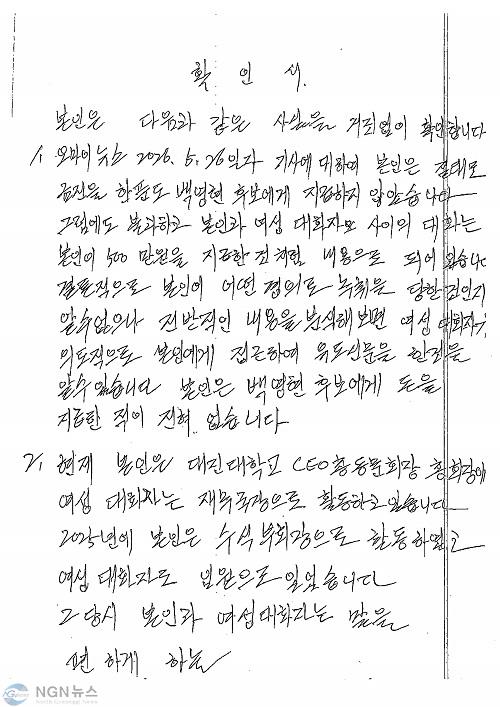 확 인 서.
본인은 다음과 같은 사실을 거짓없이 확인합니다
1, 오마이뉴스 2026. 5. 26일자 기사에 대하여 본인은 절대로
금전을 한푼도 백영현 후보에게 지급하지 않았습니다
그럼에도 불과하고 본인과 여성 대화자와 사이의 대화는
본인이 500 만원을 지급한 것처럼 내용으로 되어 있습니다
결론적으로 본인이 어떤 경위로 녹취를 당한것인지
알수없으나 전반적인 내용을 분석해보면 여성 대화자가
의도적으로 본인에게 접근하여 유도신문을 한것을
알수있습니다 본인은 백영현 후보에게 돈을
지급한 적이 전혀 없습니다
2, 현재 본인은 대진대학교 CEO총동문회장
여성 대화자는 재무국장으로 활동하고 있습니다
2025년에 본인은 수석부회장으로 활동하였고
여성 대화자도 임원으로 있었습니다
그 당시 본인과 여성대화자는 말을
편하게 하는
NGN뉴스
North Gyeonggi News